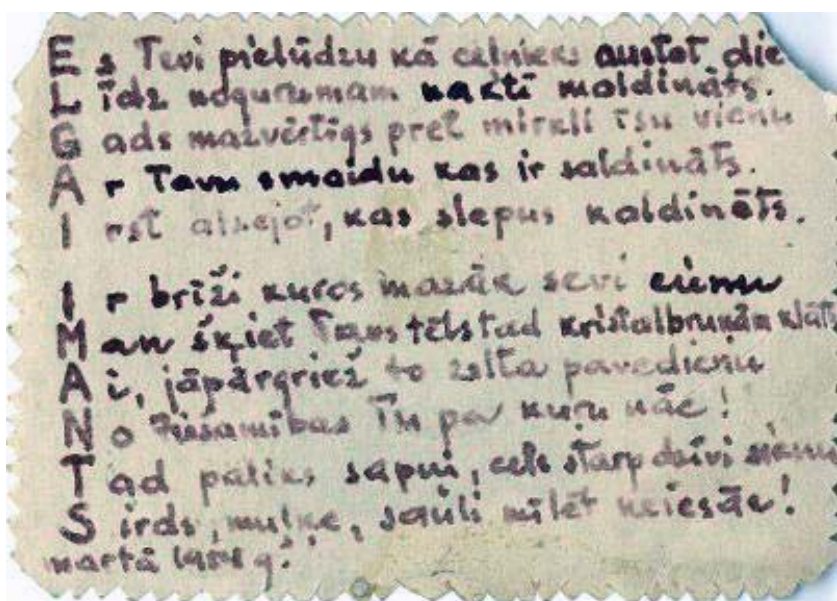 Es Tevi pielūdzu kā celnieks austot die
Līdz nogurumam naktī maldināts.
Gads mazvērtīgs pret mirkli īsu vienu
Ar Tavu smaidu kas ir saldināts.
Irst atsejot, kas slepus kaldināts.
Ir brīži kuros mazāk sevi cienu
Man šķiet Tavs tēls tad kristalbruņām klāts
Ai, jāpārgriež to zelta pavedienu
No Tiešamības Tu pa kuru nāc!
Tad paliks sapņi, cels starp dzīvi sienu
Sirds, muļķe, sauli mīlēt neiesāc!
martā g.